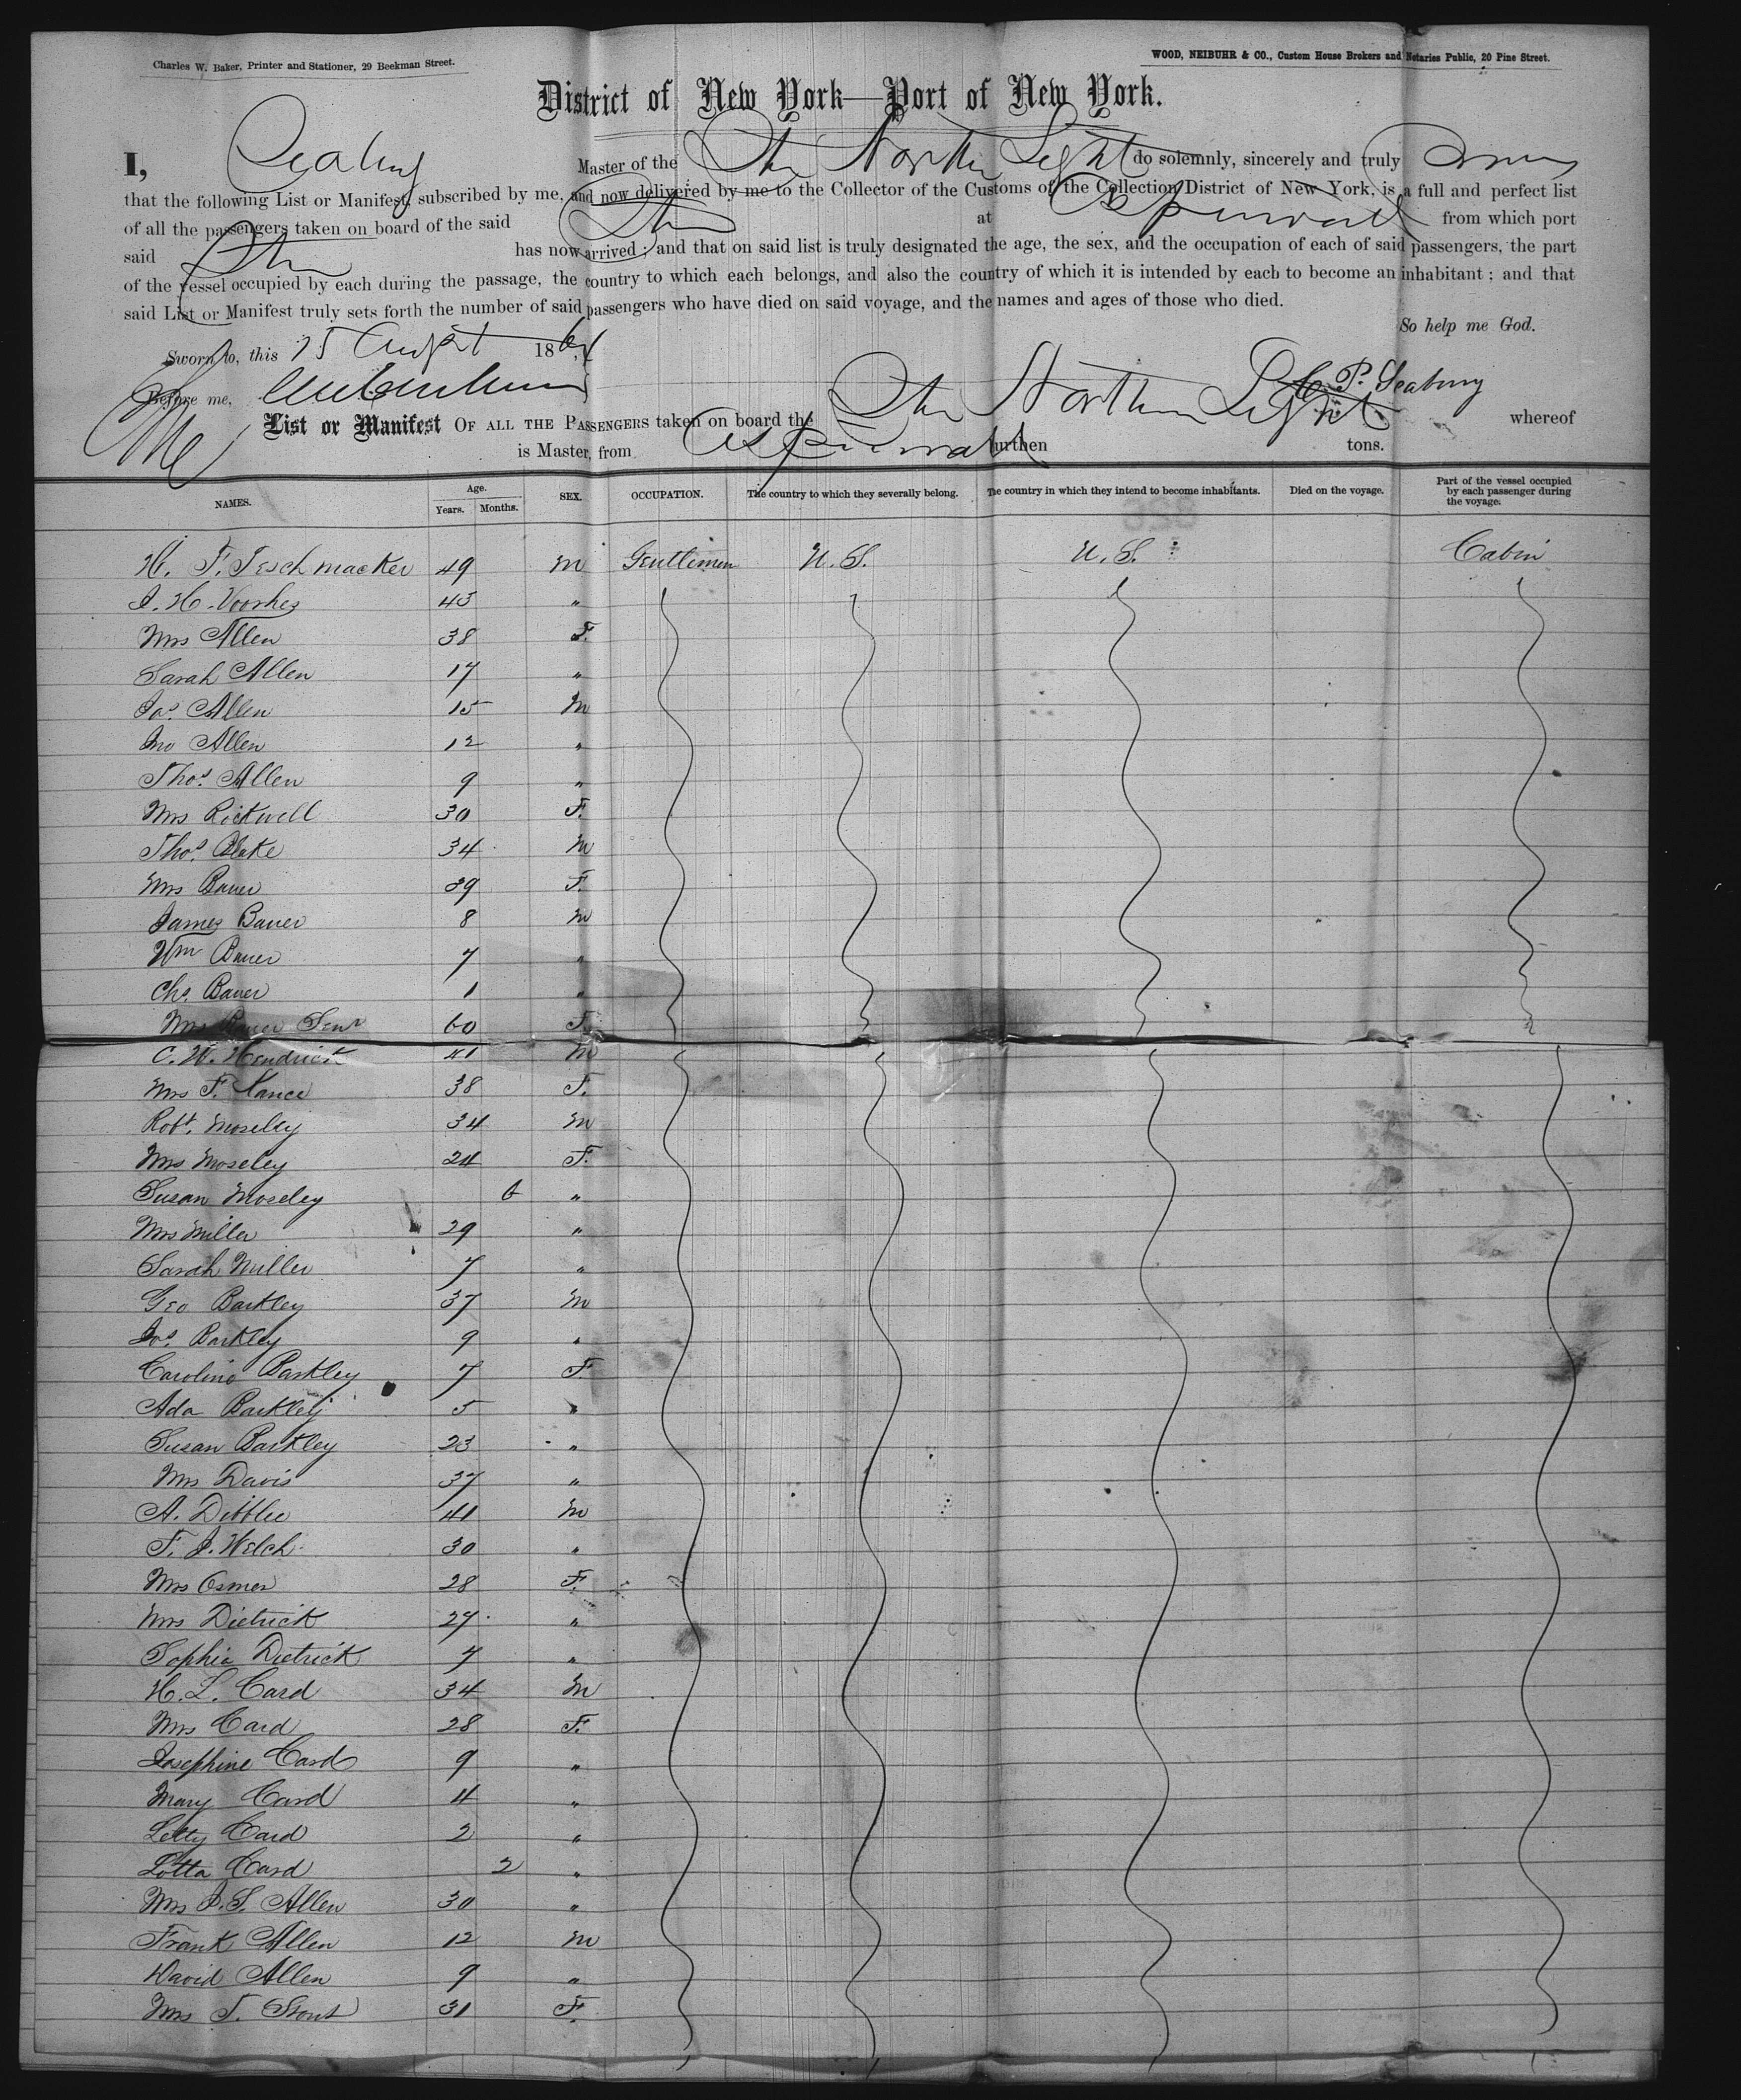 Charles W. Baker, Printer and Stationer, 29 Beekman Street.
WOOD, NEIBUHR & CO., Custom House Brokers and Notaries Public, 20 Pine Street.
District of New York—Port of New York.
I, Seabury Master of the Str North Light do solemnly, sincerely and truly swear
that the following List or Manifest, subscribed by me, and now delivered by me to the Collector of the Customs of the Collection District of New York, is a full and perfect list
of all the passengers taken on board of the said Str at Aspinwall from which port
said Str has now arrived; and that on said list is truly designated the age, the sex, and the occupation of each of said passengers, the part
of the vessel occupied by each during the passage, the country to which each belongs, and also the country of which it is intended by each to become an inhabitant; and that
said List or Manifest truly sets forth the number of said passengers who have died on said voyage, and the names and ages of those who died.
So help me God.
Sworn to, this 25 August 186
Before me, P. Seabury
List or Manifest OF ALL THE PASSENGERS taken on board the Str Northern Light whereof
is Master, from Aspinwall burthen tons.
NAMES. Age. Years. Months. SEX. OCCUPATION. The country to which they severally belong. The country in which they intend to become inhabitants. Died on the voyage. Part of the vessel occupied by each passenger during the voyage.
H. F. Teschmacker 49 m Gentlemen U. S. U. S. Cabin
J. H. Voorhes 45 "
Mrs Allen 38 F.
Sarah Allen 17 "
Jas. Allen 15 m
Jno Allen 12 "
Thos. Allen 9 "
Mrs Rickwell 30 F.
Thos. Blake 34 m
Mrs Bauer 29 F.
James Bauer 8 m
Wm Bauer 7 "
Chs Bauer 1 "
Mrs Bauer Senr 60 F.
C. W. Hendrick 41 m
Mrs F. Vance 38 F.
Robt. Moseley 34 m
Mrs Moseley 24 F.
Susan Moseley 6 "
Mrs Miller 29 "
Sarah Miller 7 "
Geo Barkley 37 m
Jos. Barkley 9 "
Caroline Barkley 7 F
Ada Barkley 5 "
Susan Barkley 23 "
Mrs Davis 37 "
A. Dibblee 41 m
F. J. Welch 30 "
Mrs Osmer 28 F.
Mrs Dietrick 27 "
Sophia Dietrick 7 "
H. L. Card 34 m
Mrs Card 28 F.
Josephine Card 9 "
Mary Card 4 "
Letty Card 2 "
Lotta Card 2 "
Mrs J. S. Allen 30 "
Frank Allen 12 m
David Allen 9 "
Mrs T. Stout 31 F.